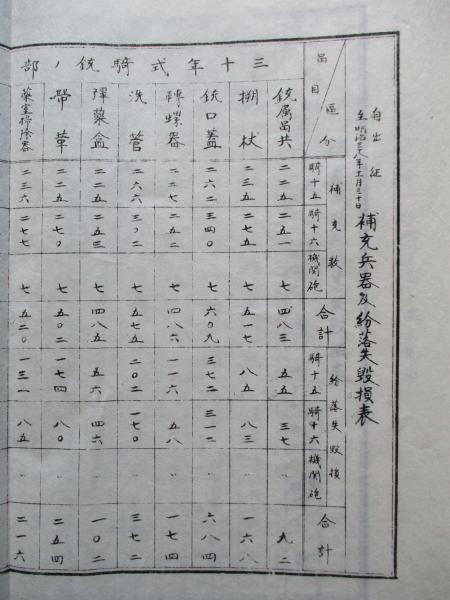 自出征
至明治三八年十一月三十日
補充兵器及紛落失毀損表
三十年式騎銃ノ部
品目 区分
補充数 騎十五 騎十六 機関砲 合計 紛落失毀損 騎十五 騎十六 機関砲 合計
銃属品共 二二五 二五一 七 四八三 五五 三七 〃 九二
搠杖 二三五 二七五 七 五一七 八五 八三 〃 一六八
銃口蓋 二六二 三四〇 七 六〇九 三七二 三一二 〃 六八四
轉螺器 二二七 二五二 七 四八六 一一六 五八 〃 一七四
洗管 二六六 三〇二 七 五七五 二〇二 一七〇 〃 三七二
弾藥盒 二二五 二五三 七 四八五 五六 四六 〃 一〇二
帶革 二二五 二七〇 七 五〇二 一七四 八〇 〃 二五四
藥室掃除器 二三六 二七七 七 五二〇 一三一 八五 〃 二一六